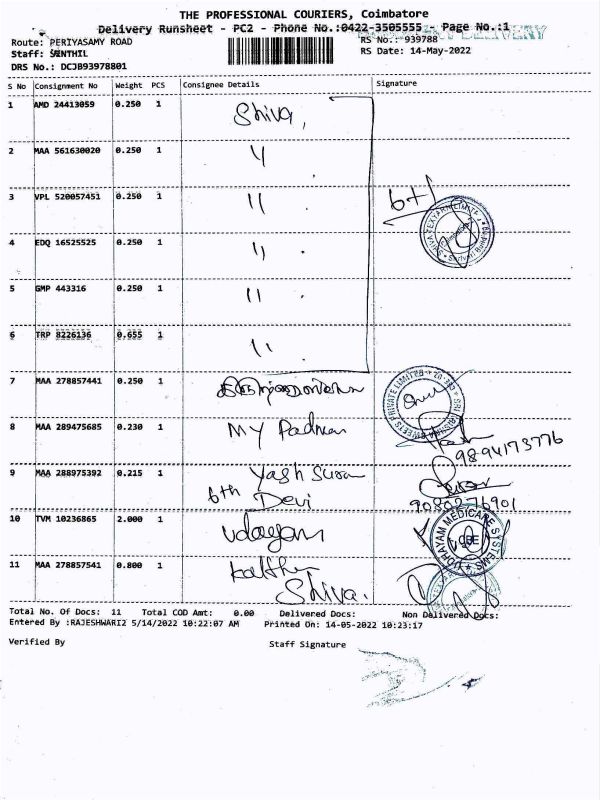 THE PROFESSIONAL COURIERS, Coimbatore
Delivery Runsheet - PC2 - Phone No.:0422-3505555 - Page No.:1
DELIVERY
Route: PERIYASAMY ROAD
RS No.: 939788
Staff: SENTHIL
RS Date: 14-May-2022
DRS No.: DCJB93978801
S No Consignment No Weight PCS Consignee Details Signature
1 AMD 24413059 0.250 1 Shiva,
2 MAA 561630020 0.250 1 11
3 VPL 520057451 0.250 1 11 .
4 EDQ 16525525 0.250 1 11 .
5 GMP 443316 0.250 1 11 .
6 TRP 8226136 0.655 1 11 .
7 MAA 278857441 0.250 1
8 MAA 289475685 0.230 1 MY Padma
9894173776
9 MAA 288975392 0.215 1 Yash Sura
6th Devi
9080276901
10 TVM 10236865 2.000 1 Udayam
UDHAYAM MEDICARE SYSTEMS
CBE
11 MAA 278857541 0.800 1
Shiva.
Total No. Of Docs: 11 Total COD Amt: 0.00 Delivered Docs: Non Delivered Docs:
Entered By :RAJESHWARI2 5/14/2022 10:22:07 AM Printed On: 14-05-2022 10:23:17
Verified By Staff Signature